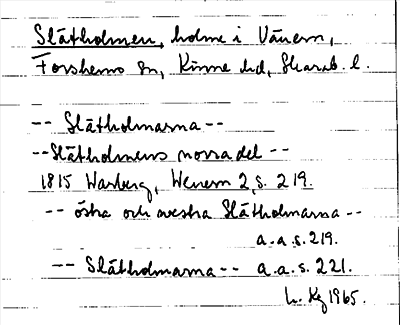 Slätholmen, holme i Vänern,
Forshems sn, Kinne hd, Skarab. l.
-- Slätholmarna --
-- Slätholmens norra del --
1815 Warberg, Wenern 2, s. 219.
-- östra och westra Slätholmarna --
a.a.s. 219.
-- Slätholmarna -- a.a.s. 221.
Kg 1965.